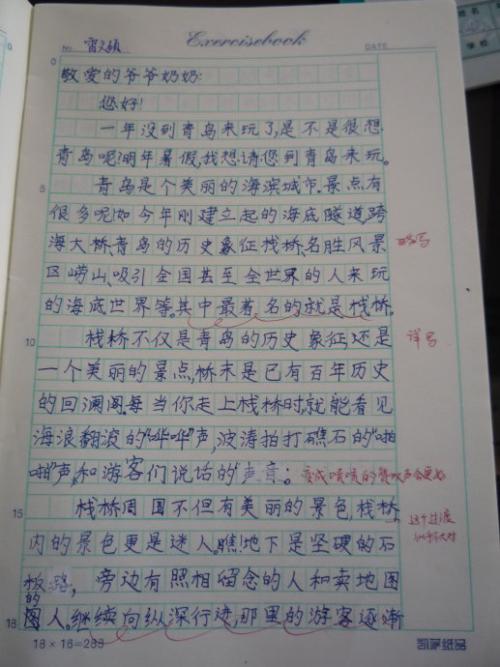 Exercisebook
No
DATE
0
敬爱的爷爷奶奶:
您好!
一年没到青岛来玩了,是不是很想
青岛呢?明年暑假,我想请您到青岛来玩。
5
青岛是个美丽的海滨城市。景点有
很多呢!如今年刚建立起的海底隧道,跨
海大桥,青岛的历史象征栈桥,名胜风景
略写
区崂山,吸引全国甚至全世界的人来玩
的海底世界等。其中最着名的就是栈桥。
10
栈桥不仅是青岛的历史象征,还是
详写
一个美丽的景点,桥末是已有百年历史
的回澜阁。每当你走上栈桥时,就能看见
海浪翻滚的"哗哗"声,波涛拍打礁石的"啪
啪"声,和游客们说话的"声音。
变成啧啧的赞叹声会更好
15
栈桥周围不但有美丽的景色,栈桥
这个过渡
内的景色更是迷人。瞧!地下是坚硬的石
板路,旁边有照相留念的人和卖地图
的
人。继续向纵深行进,那里的游客逐渐
18
18×16=288